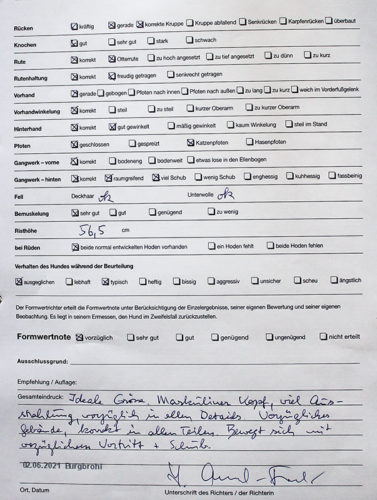 Rücken ☒ kräftig ☒ gerade ☒ korrekte Kruppe ☐ Kruppe abfallend ☐ Senkrücken ☐ Karpfenrücken ☐ überbaut
Knochen ☒ gut ☐ sehr gut ☐ stark ☐ schwach
Rute ☒ korrekt ☒ Otterrute ☐ zu hoch angesetzt ☐ zu tief angesetzt ☐ zu dünn ☐ zu kurz
Rutenhaltung ☒ korrekt ☒ freudig getragen ☐ senkrecht getragen
Vorhand ☒ gerade ☐ gebogen ☐ Pfoten nach innen ☐ Pfoten nach außen ☐ zu lang ☐ zu kurz ☐ weich im Vorderfußgelenk
Vorhandwinkelung ☒ korrekt ☐ steil ☐ zu steil ☐ kurzer Oberarm ☐ zu kurzer Oberarm
Hinterhand ☒ korrekt ☒ gut gewinkelt ☐ mäßig gewinkelt ☐ kaum Winkelung ☐ steil im Stand
Pfoten ☒ geschlossen ☐ gespreizt ☒ Katzenpfoten ☐ Hasenpfoten
Gangwerk – vorne ☒ korrekt ☐ bodeneng ☐ bodenweit ☐ etwas lose in den Ellenbogen
Gangwerk – hinten ☒ korrekt ☒ raumgreifend ☒ viel Schub ☐ wenig Schub ☐ enghessig ☐ kuhhessig ☐ fassbeinig
Fell Deckhaar ok Unterwolle ok
Bemuskelung ☒ sehr gut ☐ gut ☐ genügend ☐ zu wenig
Risthöhe 56,5 cm
bei Rüden ☒ beide normal entwickelten Hoden vorhanden ☐ ein Hoden fehlt ☐ beide Hoden fehlen
Verhalten des Hundes während der Beurteilung
☒ ausgeglichen ☐ lebhaft ☒ typisch ☐ heftig ☐ bissig ☐ aggressiv ☐ unsicher ☐ scheu ☐ ängstlich
Der Formwertrichter erteilt die Formwertnote unter Berücksichtigung der Einzelergebnisse, seiner eigenen Bewertung und seiner eigenen
Beobachtung. Es liegt in seinem Ermessen, den Hund im Zweifelsfall zurückzustellen.
Formwertnote ☒ vorzüglich ☐ sehr gut ☐ gut ☐ genügend ☐ ungenügend ☐ nicht erteilt
Ausschlussgrund:
Empfehlung / Auflage:
Gesamteindruck: Ideale Grösse, Maskuliner Kopf, viel Aus-
strahlung, vorzüglich in allen Details. Vorzügliches
Gebäude, korrekt in allen Teilen. Bewegt sich mit
vorzüglichem Vortritt + Schub.
02.06.2021 Burgbrohl
Ort, Datum Unterschrift des Richters / der Richterin